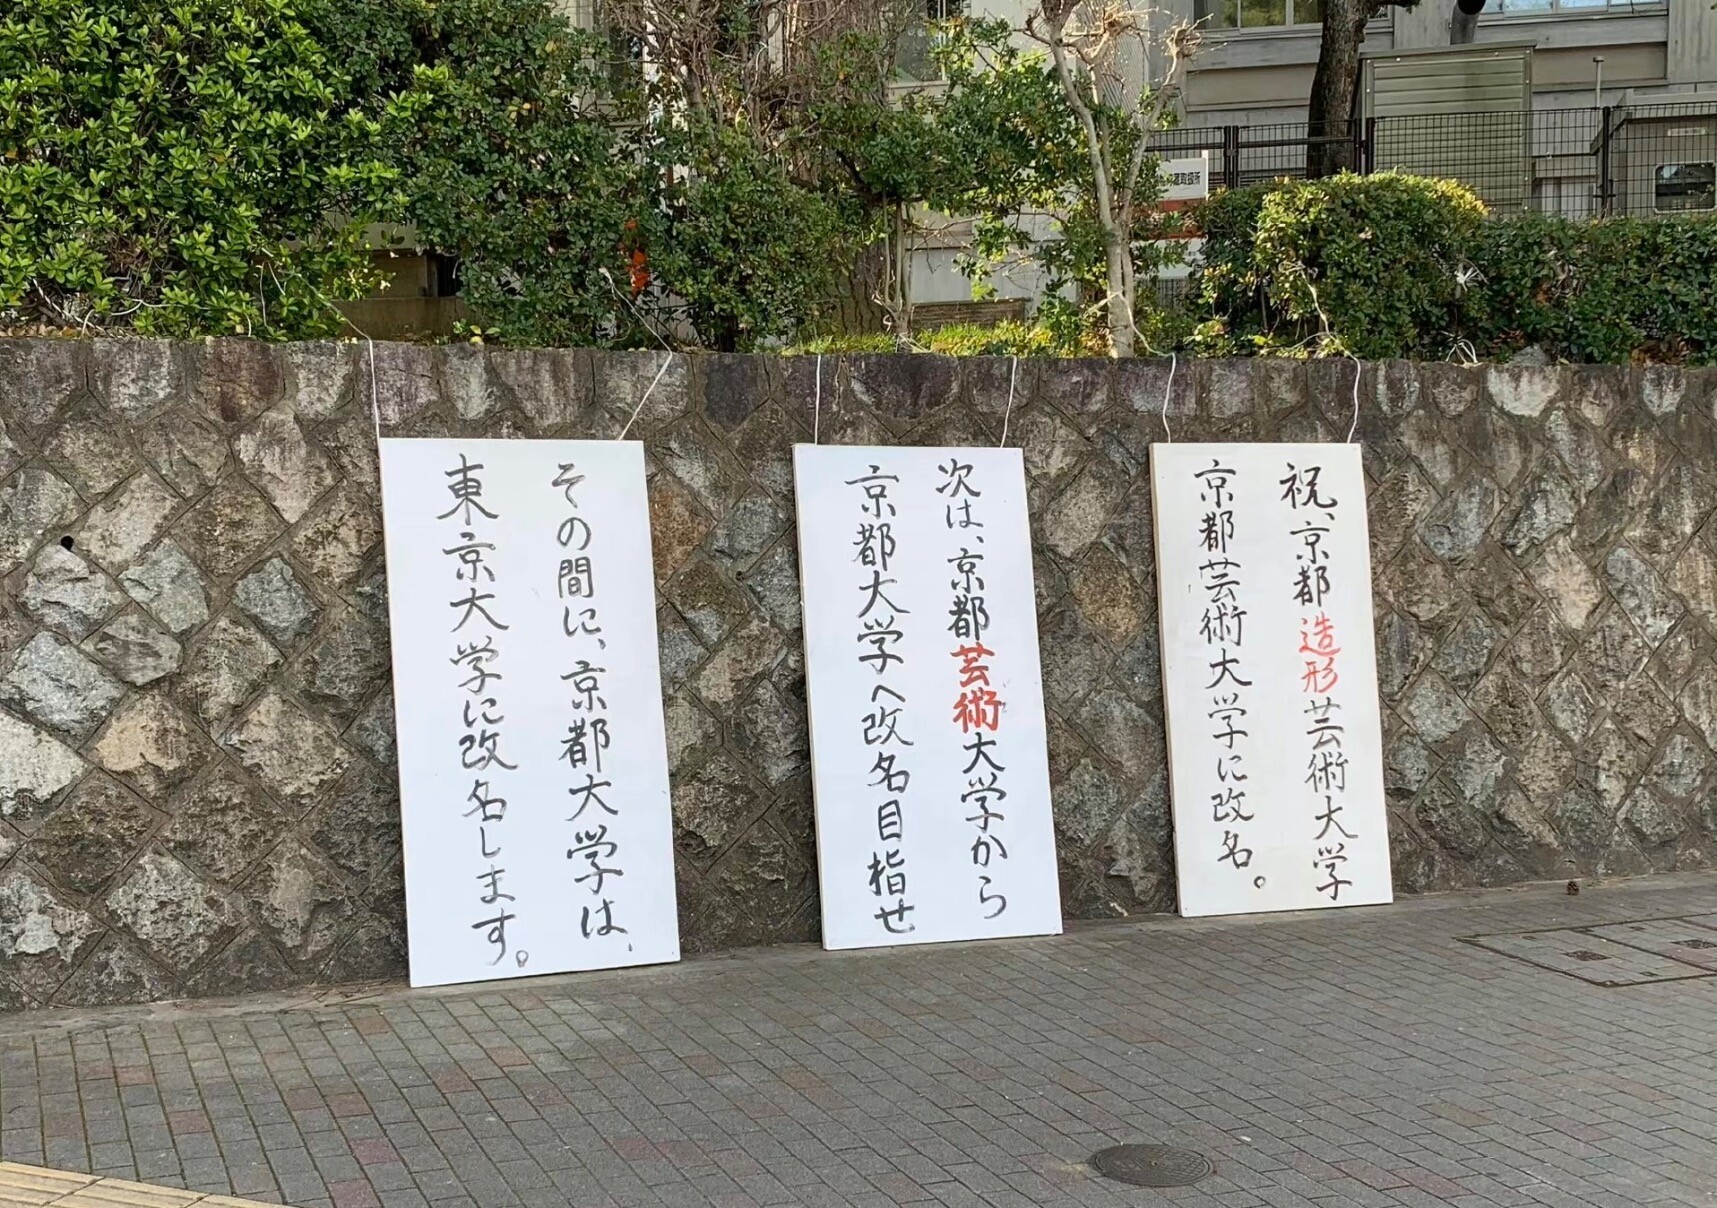 祝、京都造形芸術大学
京都芸術大学に改名。
次は、京都芸術大学から
京都大学へ改名目指せ
その間に、京都大学は、
東京大学に改名します。